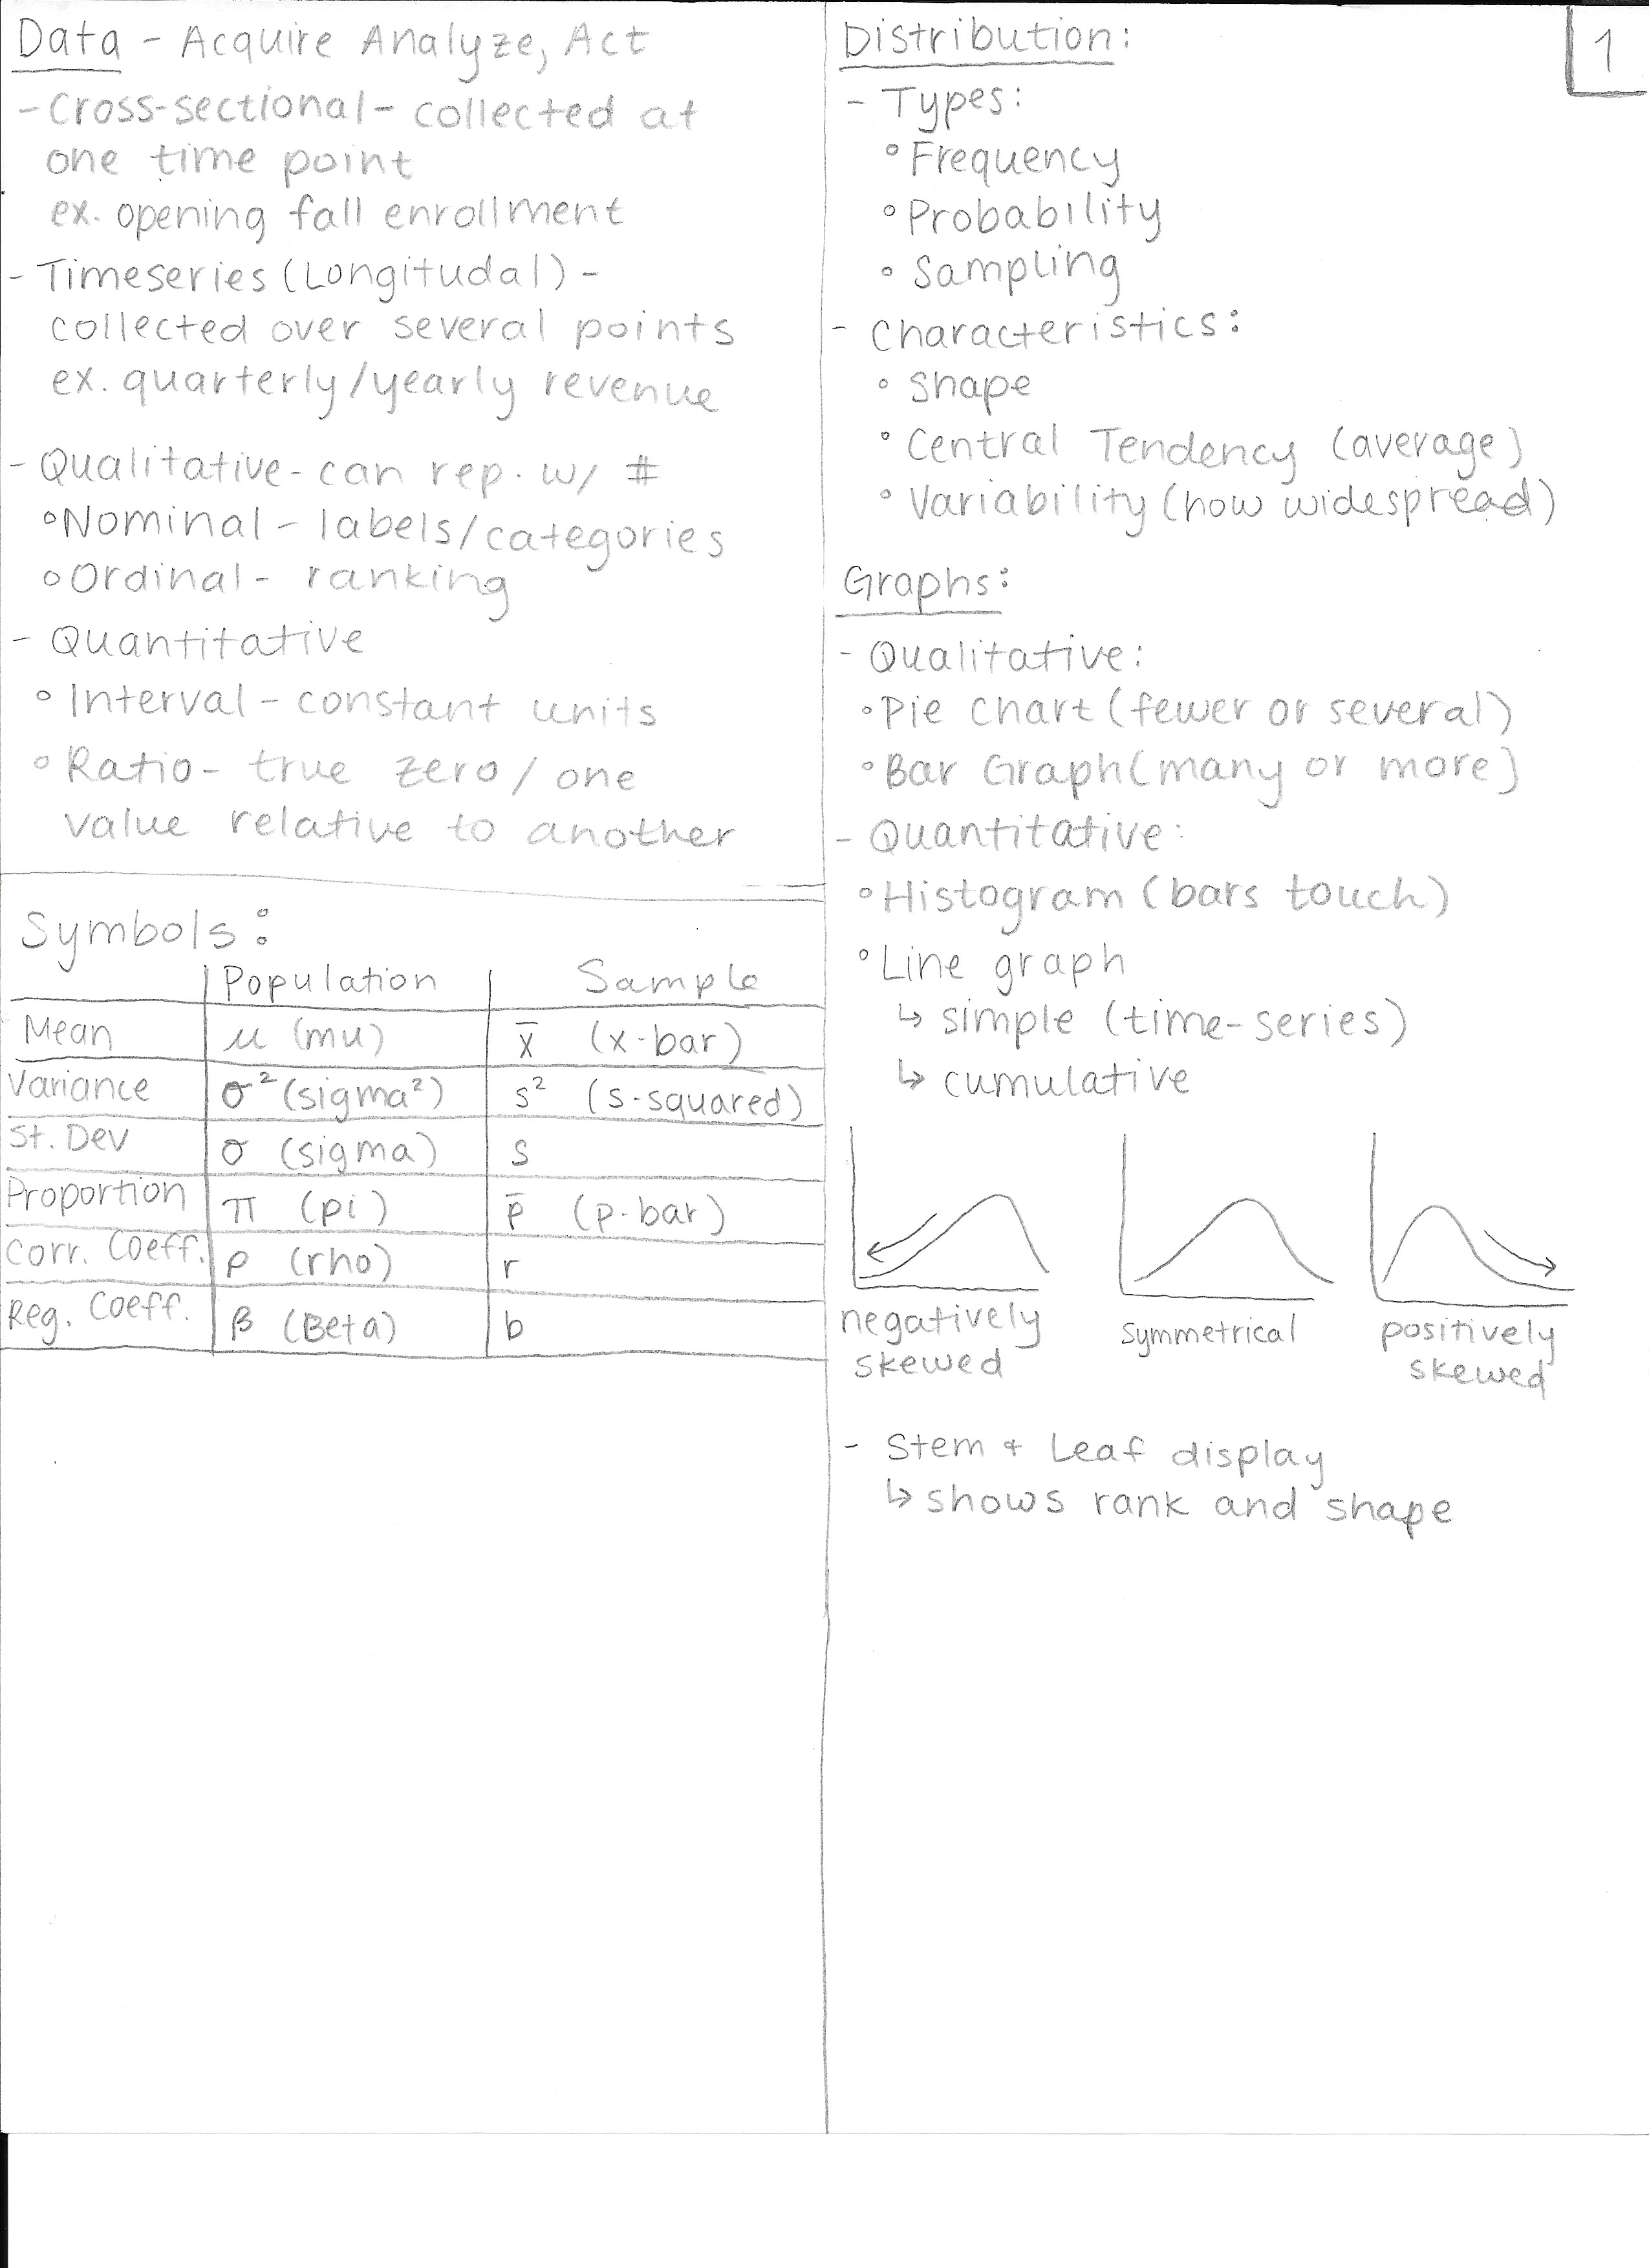 Data - Acquire Analyze, Act
- Cross-sectional - collected at
one time point
ex. opening fall enrollment
- Timeseries (Longitudal) -
collected over several points
ex. quarterly/yearly revenue
- Qualitative - can rep. w/ #
° Nominal - labels/categories
° Ordinal - ranking
- Quantitative
° Interval - constant units
° Ratio - true zero/one
value relative to another
Symbols:
Population Sample
Mean μ (mu) x̄ (x-bar)
Variance σ² (sigma²) s² (s-squared)
St. Dev σ (sigma) s
Proportion π (pi) p̄ (p-bar)
Corr. Coeff. ρ (rho) r
Reg. Coeff. β (Beta) b
1
Distribution:
- Types:
° Frequency
° Probability
° Sampling
- Characteristics:
° Shape
° Central Tendency (average)
° Variability (how widespread)
Graphs:
- Qualitative:
° Pie Chart (fewer or several)
° Bar Graph (many or more)
- Quantitative:
° Histogram (bars touch)
° Line graph
↳ simple (time-series)
↳ cumulative
negatively
skewed
symmetrical
positively
skewed
- Stem + Leaf display
↳ shows rank and shape